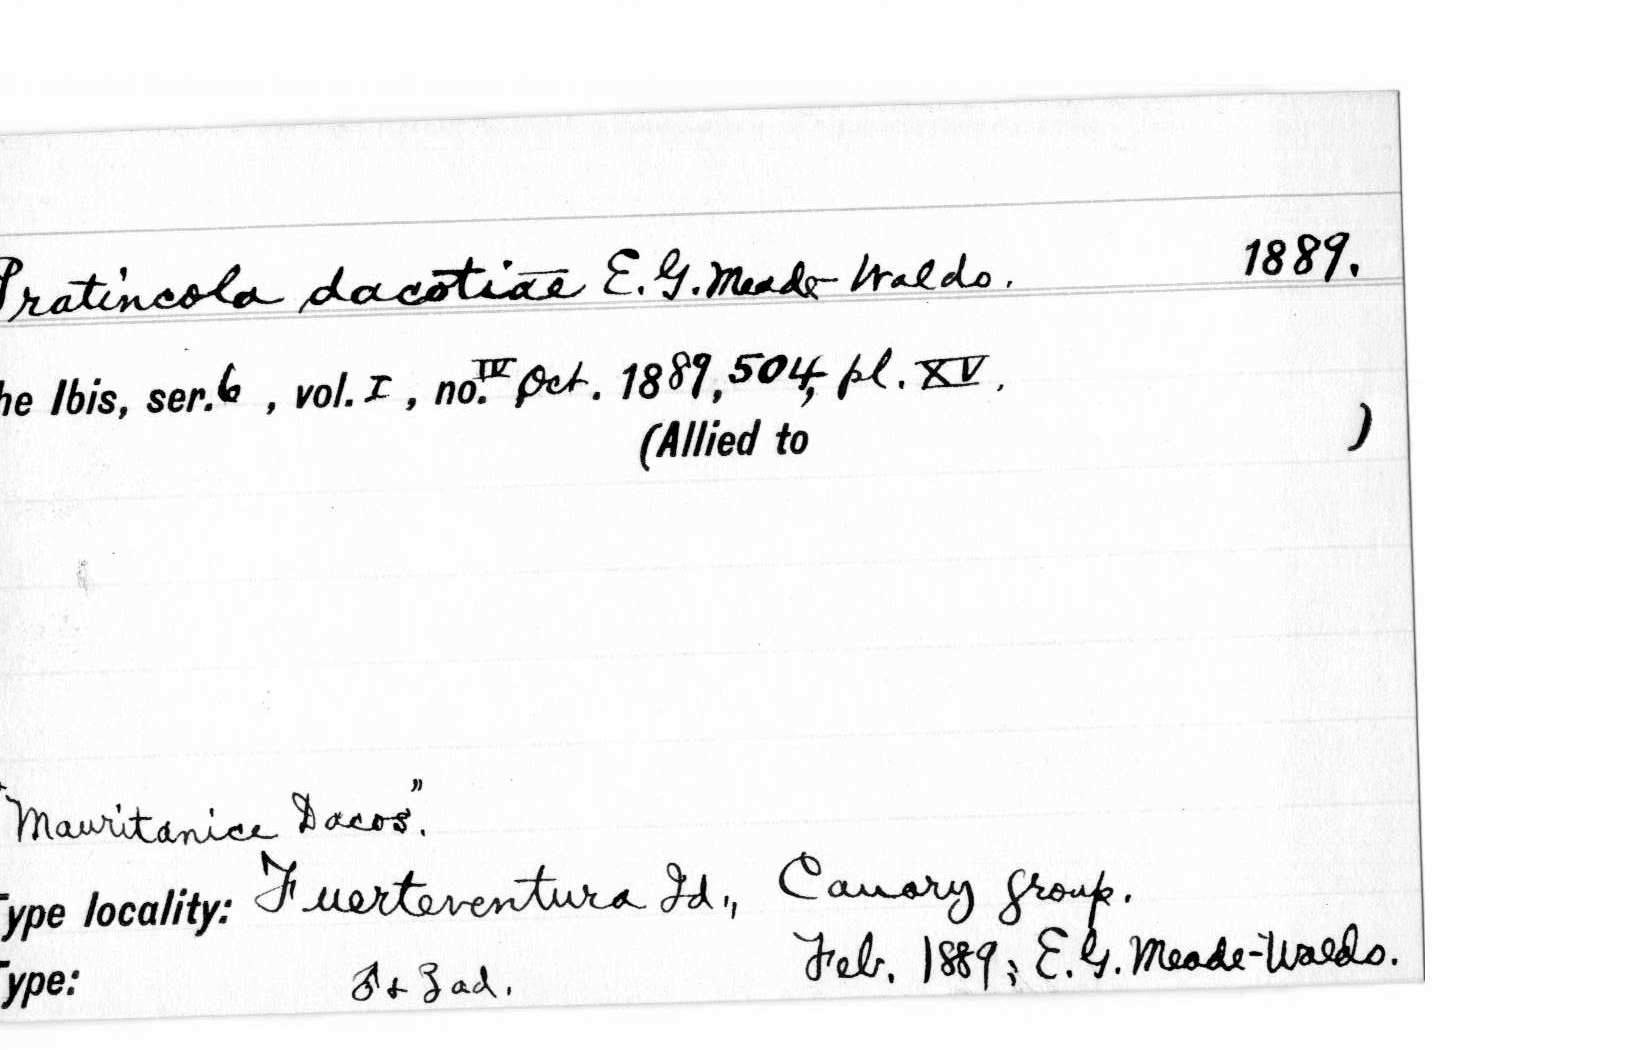 Pratincola dacotiae E. G. Meade-Waldo. 1889.
he Ibis, ser. 6, vol. I, no. IV Oct. 1889, 504, pl. XV.
(Allied to )
"Mauritanice Dacos".
Type locality: Fuerteventura Id., Canary group.
Type: ♂ & ♀ ad. Feb. 1889; E. G. Meade-Waldo.